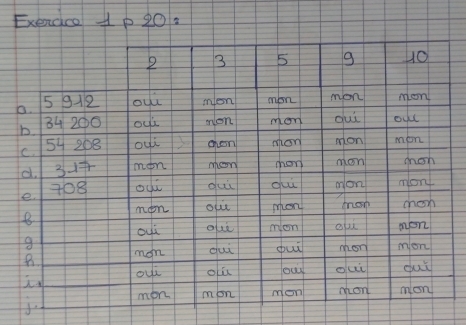 Exercice 1 p 20 :
2 3 5 9 10
a. 5 912 oui non non non non
b. 34 200 oui non non oui oui
c. 54 208 oui non non non non
d. 317 non non non non non
e. 708 oui oui oui non non
f. non oui non non non
g. oui oui non oui non
h. non oui oui non non
i. oui oui oui oui oui
j. non non non non non